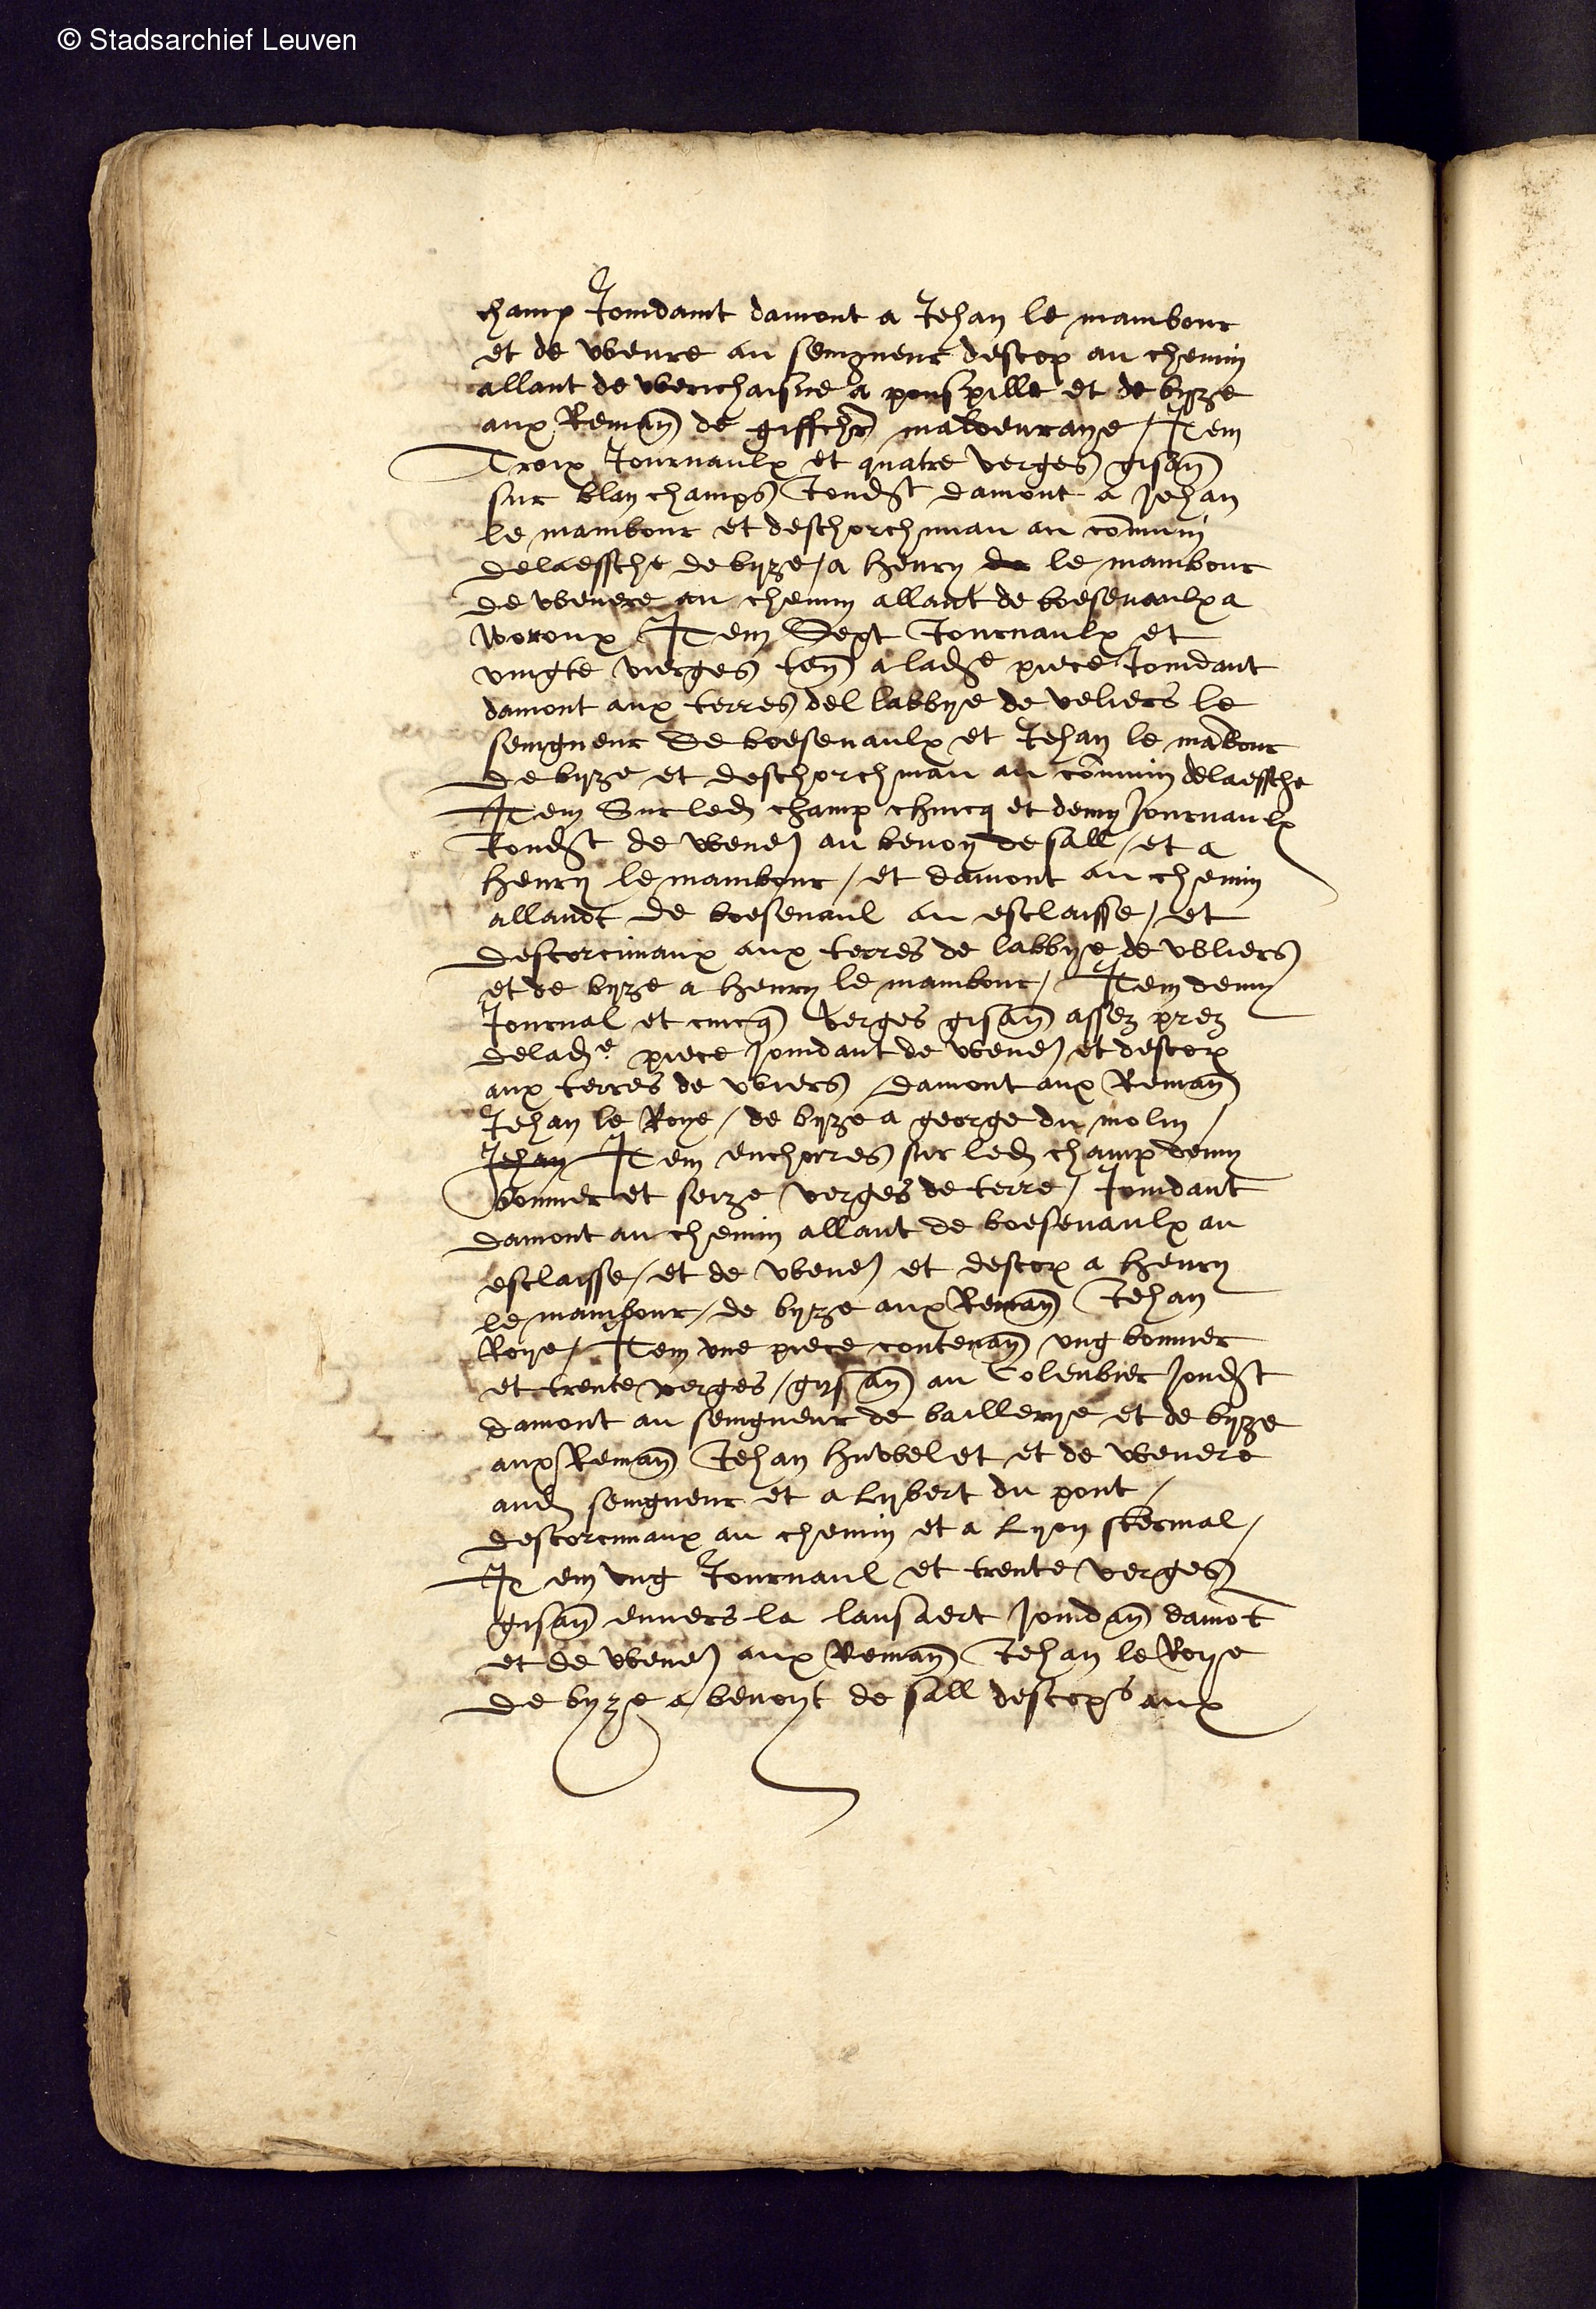 © Stadsarchief Leuven
champ Joindant damont a Jehan le mambour
et de weure au seingneur descop au chemin
allant de werichaisne a pouspille et de byze
aux Reman de malveuraye / Item
Troix Journaulx et quatre verges gisan
sur blan champs Jondst damont a Jehan
le mambour et deschorchmau au commun
delaessche de byze / a henry de le mambour
de wevere au chemin allant de boesenaulx a
woroux Item Sept Journaulx et
vingte vierges ten a ladse piece Joindant
damont aux terres del labbye de veliers le
seingneur de boesenaulx et Jehan le mabour
de byze et deschorchmau au commun delaessche
Item Sur led champ chincq et demy Journaulx
Jondst de weue au benoy de sall / et a
henry le mambour / et damont au chemin
allandt de boesenaul au esclaisse / et
descorcimaux aux terres de labbye de vbliers
et de byze a henry le mambour / Item demy
Journal et cincq verges gisan assez prez
delade piece joindant de weue et descop
aux terres de vliers / damont aux Reman
Jehan le Roye / de byze a george du molin /
Jehan Item enchorres sur led champ demy
bonnier et seize verges de terre / Joindant
damont au chemin allant de boesenaulx au
esclaisse / et de weue et descop a henry
le mambour / de byze aux Reman Jehan
Roye / Item vne piece contenan vng bonnier
et trente verges / gysan au Colenbier Jondst
damont au seingneur de baillerye et de byze
aux Reman Jehan huwelet et de wevere
aud seingneur et a lybert du pont /
descorcimaux au chemin et a Lyon stermal /
Item vng Journaul et trente verges
gisan envers la lansaert joindan damot
et de weue aux Reman Jehan le Roye
de byze a benoyt de sall descops aux